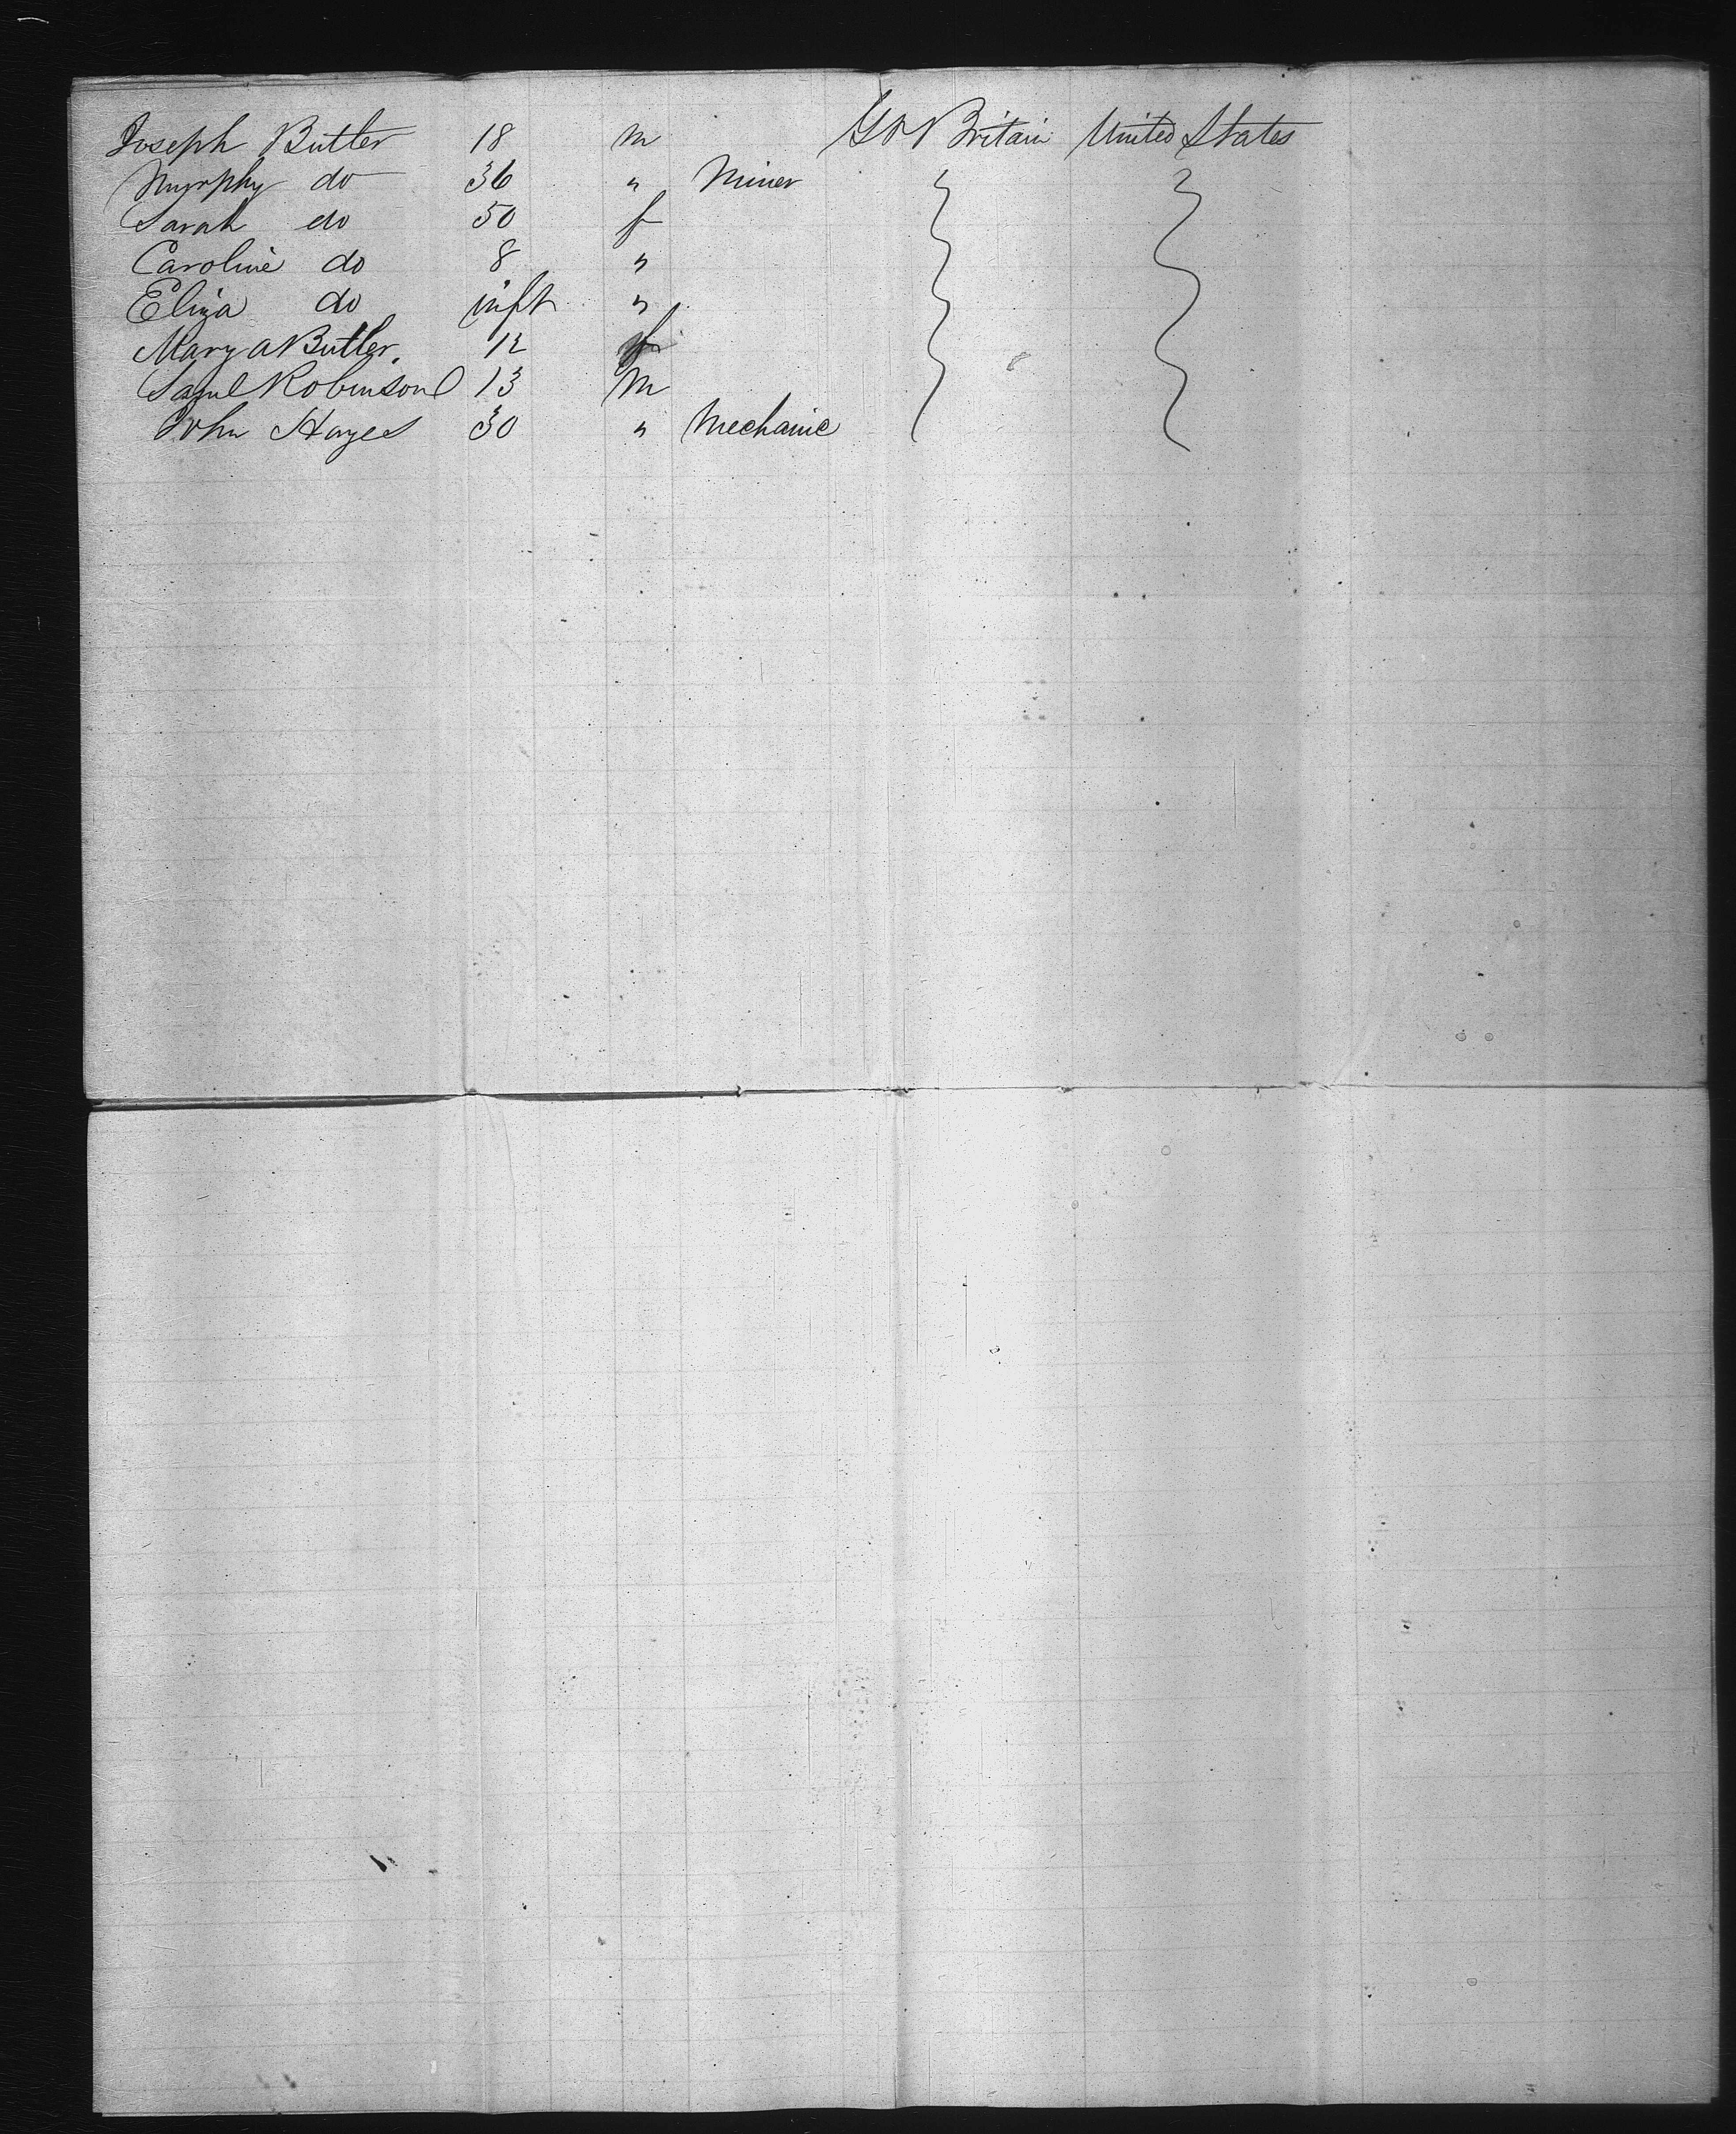 Joseph Butler 18 m Gr Britain United States
Murphy do 36 " Miner
Sarah do 50 f
Caroline do 8 "
Eliza do inft "
Mary a Butler. 12 f
Saml Robinson 13 m
John Hayes 30 " Mechanic